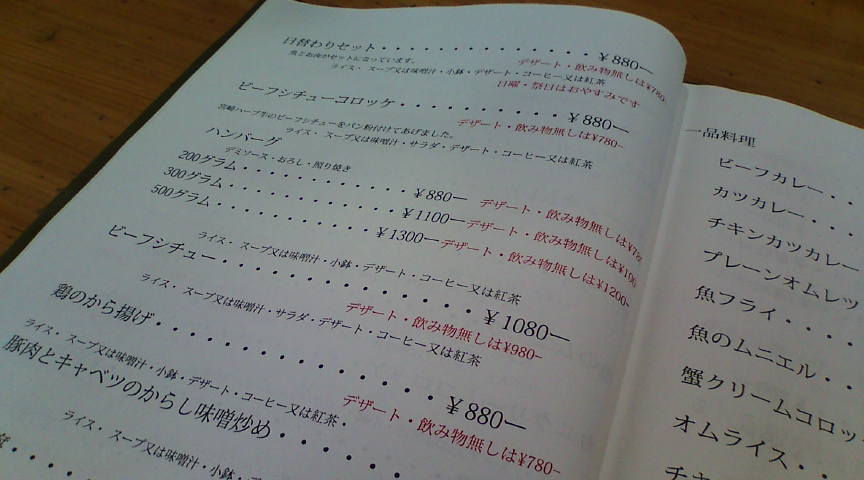 日替わりセット・・・・・・・・・・・・・・・・・¥880ー
魚とお肉がセットになっています。 デザート・飲み物無しは¥780-
ライス・ スープ又は味噌汁・小鉢・デザート・コーヒー又は紅茶
日曜・祭日はおやすみです
ビーフシチューコロッケ・・・・・・・・・・・・¥880ー
宮崎ハーブ牛のビーフシチューをパン粉付けてあげました。 デザート・飲み物無しは¥780-
ライス・ スープ又は味噌汁・サラダ・デザート・コーヒー又は紅茶
ハンバーグ
デミソース・おろし・照り焼き
200グラム・・・・・・・・・・・・¥880ー デザート・飲み物無しは¥78
300グラム・・・・・・・・・・・・¥1100ーデザート・飲み物無しは¥100
500グラム・・・・・・・・・・・・¥1300ーデザート・飲み物無しは¥1200-
ライス・ スープ又は味噌汁・小鉢・デザート・コーヒー又は紅茶
ビーフシチュー・・・・・・・・・・・・・・¥1080ー
デザート・飲み物無しは¥980-
ライス・ スープ又は味噌汁・サラダ・デザート・コーヒー又は紅茶
鶏のから揚げ・・・・・・・・・・・・・・¥880ー
デザート・飲み物無しは¥780-
ライス・ スープ又は味噌汁・小鉢・デザート・コーヒー又は紅茶・
豚肉とキャベツのからし味噌炒め・・・・・
ライス・ スープ又は味噌汁・小鉢・デ
一品料理
ビーフカレー・・
カツカレー・・・
チキンカツカレー
プレーンオムレツ
魚フライ・・・・
魚のムニエル・・
蟹クリームコロッ
オムライス・・
チキ